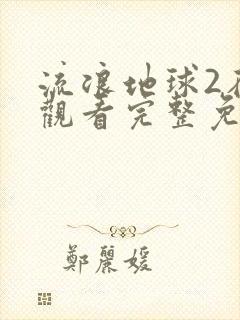 流浪地球2
觀看完整免
鄭麗媛